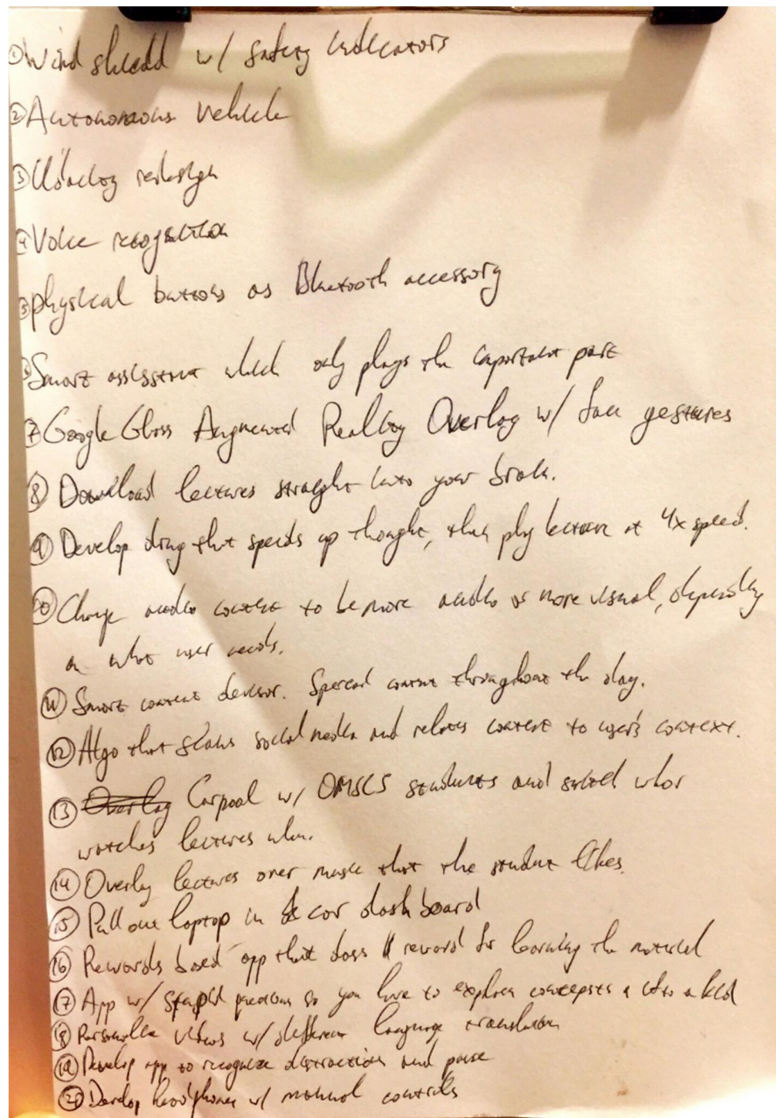 ① Windshield w/ safety indicators
② Autonomous vehicle
③ Udacity redesign
④ Voice recognition
⑤ physical buttons as Bluetooth accessory
⑥ Smart assistant which only plays the important part
⑦ Google Glass Augmented Reality Overlay w/ face gestures
⑧ Download lectures straight into your brain.
⑨ Develop drug that speeds up thought, then play lecture at 4x speed.
⑩ Change audio content to be more audio or more visual, depending
on what user needs.
⑪ Smart content. Spread content throughout the day.
⑫ Algo that scans social media and relates content to user's context.
⑬ Carpool w/ OMSCS students and switch who
watches lectures when.
⑭ Overlay lectures over music that the student likes.
⑮ Pull out laptop in car dashboard
⑯ Rewards based app that does reward for learning the material
⑰ App w/ stupid questions so you have to explain concepts a kid
⑱ views w/ different language translation
⑲ Develop app to recognize distractions and pause
⑳ Develop headphones w/ manual controls